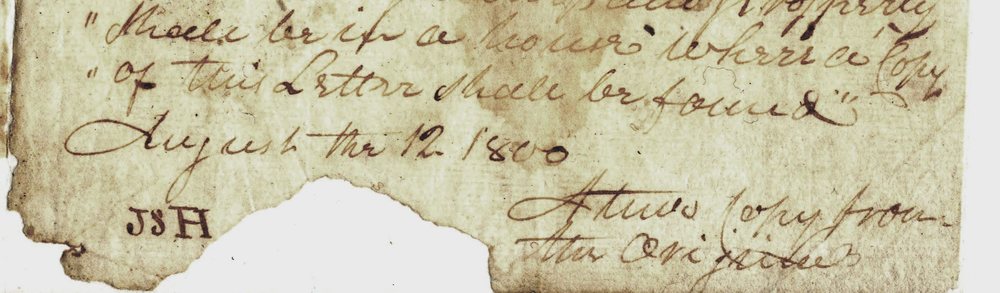 Property
"Shall be in a house where a Copy
"of this Letter Shall be found"
August the 12 1800
JSH
A true Copy from
the Original